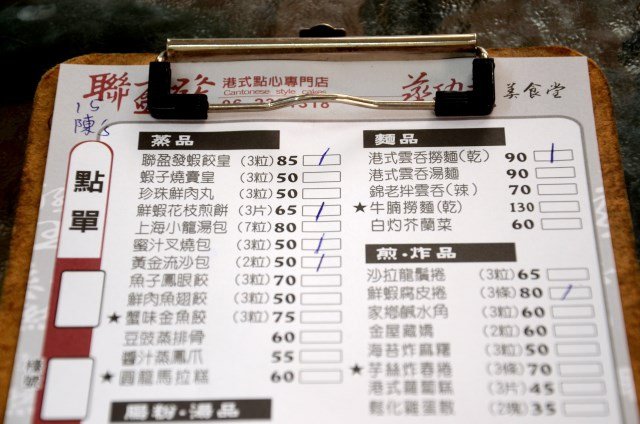 聯
港式點心專門店
Cantonese style cakes
美食堂
15
陳's
點單
樓號
蒸品
聯盈發蝦餃皇 (3粒) 85
蝦子燒賣皇 (3粒) 50
珍珠鮮肉丸 (3粒) 50
鮮蝦花枝煎餅 (3片) 65
上海小籠湯包 (7粒) 80
蜜汁叉燒包 (3粒) 50
黃金流沙包 (2粒) 50
魚子鳳眼餃 (3粒) 70
鮮肉魚翅餃 (3粒) 50
★蟹味金魚餃 (3粒) 75
豆豉蒸排骨 60
醬汁蒸鳳爪 55
★圓籠馬拉糕 60
腸粉·湯品
麵品
港式雲吞撈麵(乾) 90
港式雲吞湯麵 90
錦老拌雲吞(辣) 70
★牛腩撈麵(乾) 130
白灼芥蘭菜 60
煎·炸品
沙拉龍鬚捲 (3粒) 65
鮮蝦腐皮捲 (3條) 80
家鄉鹹水角 (3粒) 60
金屋藏嬌 (2粒) 60
海苔炸麻糬 (3粒) 50
★芋絲炸春捲 (3條) 70
港式蘿蔔糕 (3片) 45
鬆化雞蛋散 (2塊) 35